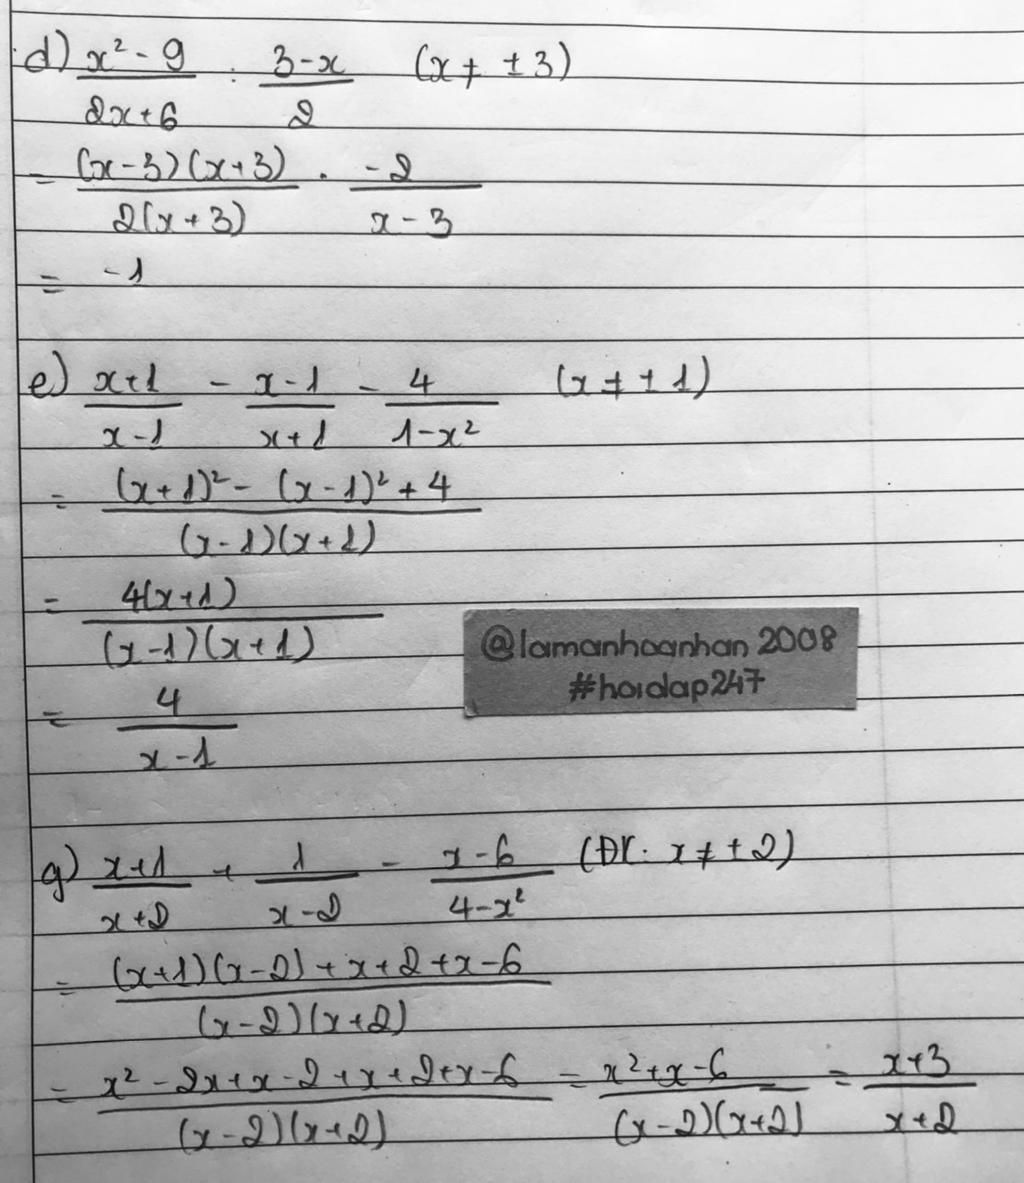 d) (x² - 9)/(2x+6) : (3-x)/2 (x ≠ ±3)
= (x-3)(x+3)/2(x+3) . -2/(x-3)
= -1
e) (x+1)/(x-1) - (x-1)/(x+1) - 4/(1-x²) (x ≠ ±1)
= ((x+1)² - (x-1)² + 4)/(x-1)(x+1)
= 4(x+1)/(x-1)(x+1)
@lamanhoanhan 2008
#hoidap247
= 4/(x-1)
g) (x+1)/(x+2) + 1/(x-2) - (x-6)/(4-x²) (ĐK: x ≠ ±2)
= ((x+1)(x-2)+x+2+x-6)/(x-2)(x+2)
= (x²-2x+x-2+x+2+x-6)/(x-2)(x+2) = (x²+x-6)/(x-2)(x+2) = (x+3)/(x+2)